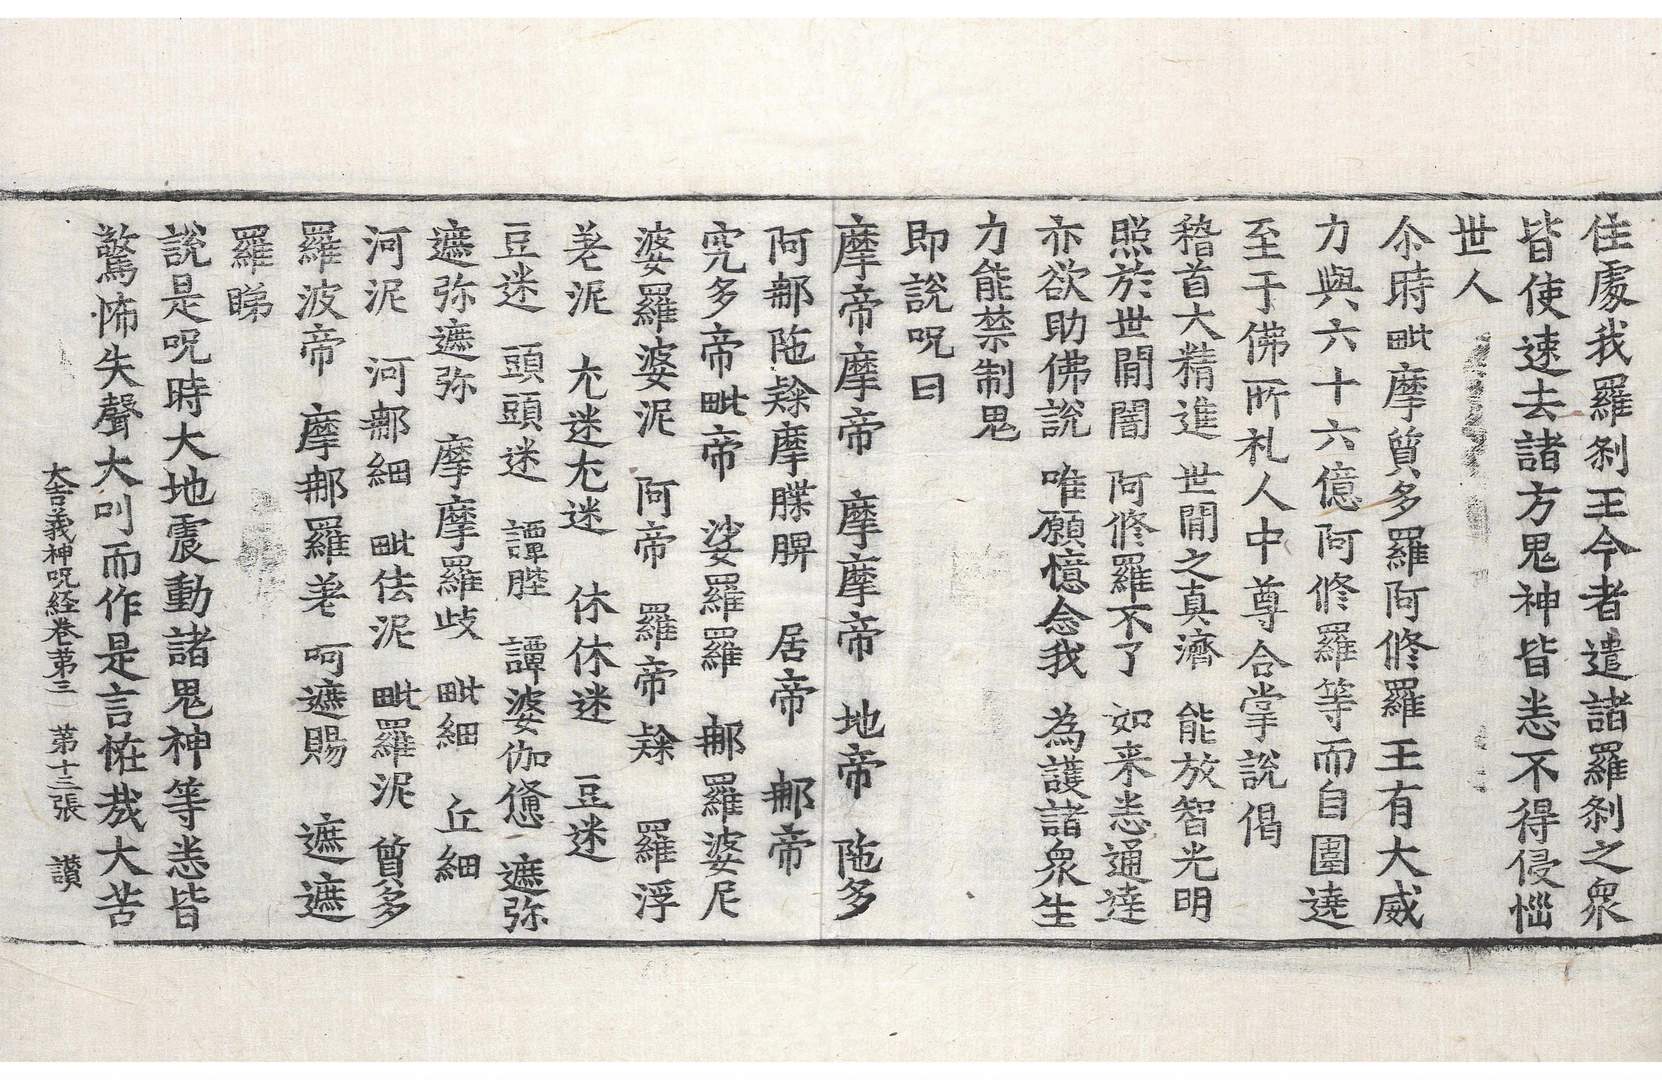 住處我羅剎王今者遣諸羅剎之衆
皆使速去諸方鬼神皆悉不得侵惱
世人
尒時毗摩質多羅阿修羅王有大威
力與六十六億阿修羅等而自圍遶
至于佛所礼人中尊合掌說偈
稽首大精進 世間之真濟 能放智光明
照於世間闇 阿修羅不了 如来悉通達
亦欲助佛說 唯願憶念我 為護諸衆生
力能禁制鬼
即說呪曰
摩帝摩帝 摩摩帝 地帝 陁多
阿郍陁 摩䐑脾 居帝 郍帝
究多帝毗帝 娑羅羅 郍羅婆尼
婆羅婆泥 阿帝 羅帝 羅浮
泥 尣迷尣迷 休休迷 豆迷
豆迷 頭頭迷 譚䏶 譚婆伽 遮弥
遮弥遮弥 摩摩羅歧 毗細 丘細
河泥 河郍細 毗佉泥 毗羅泥 質多
羅波帝 摩郍羅 呵遮賜 遮遮
羅睇
說是呪時大地震動諸鬼神等悉皆
驚怖失聲大叫而作是言恠㢤大苦
大吉義神呪経卷苐三 苐十三張 讚